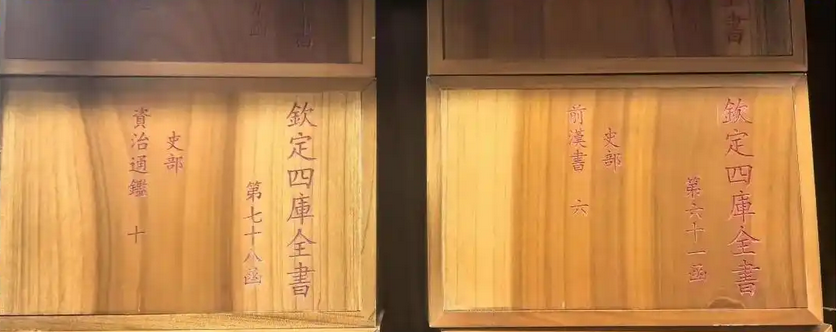 欽定四庫全書
第七十八函
史部
資治通鑑 十
欽定四庫全書
第六十一函
史部
前漢書 六
書